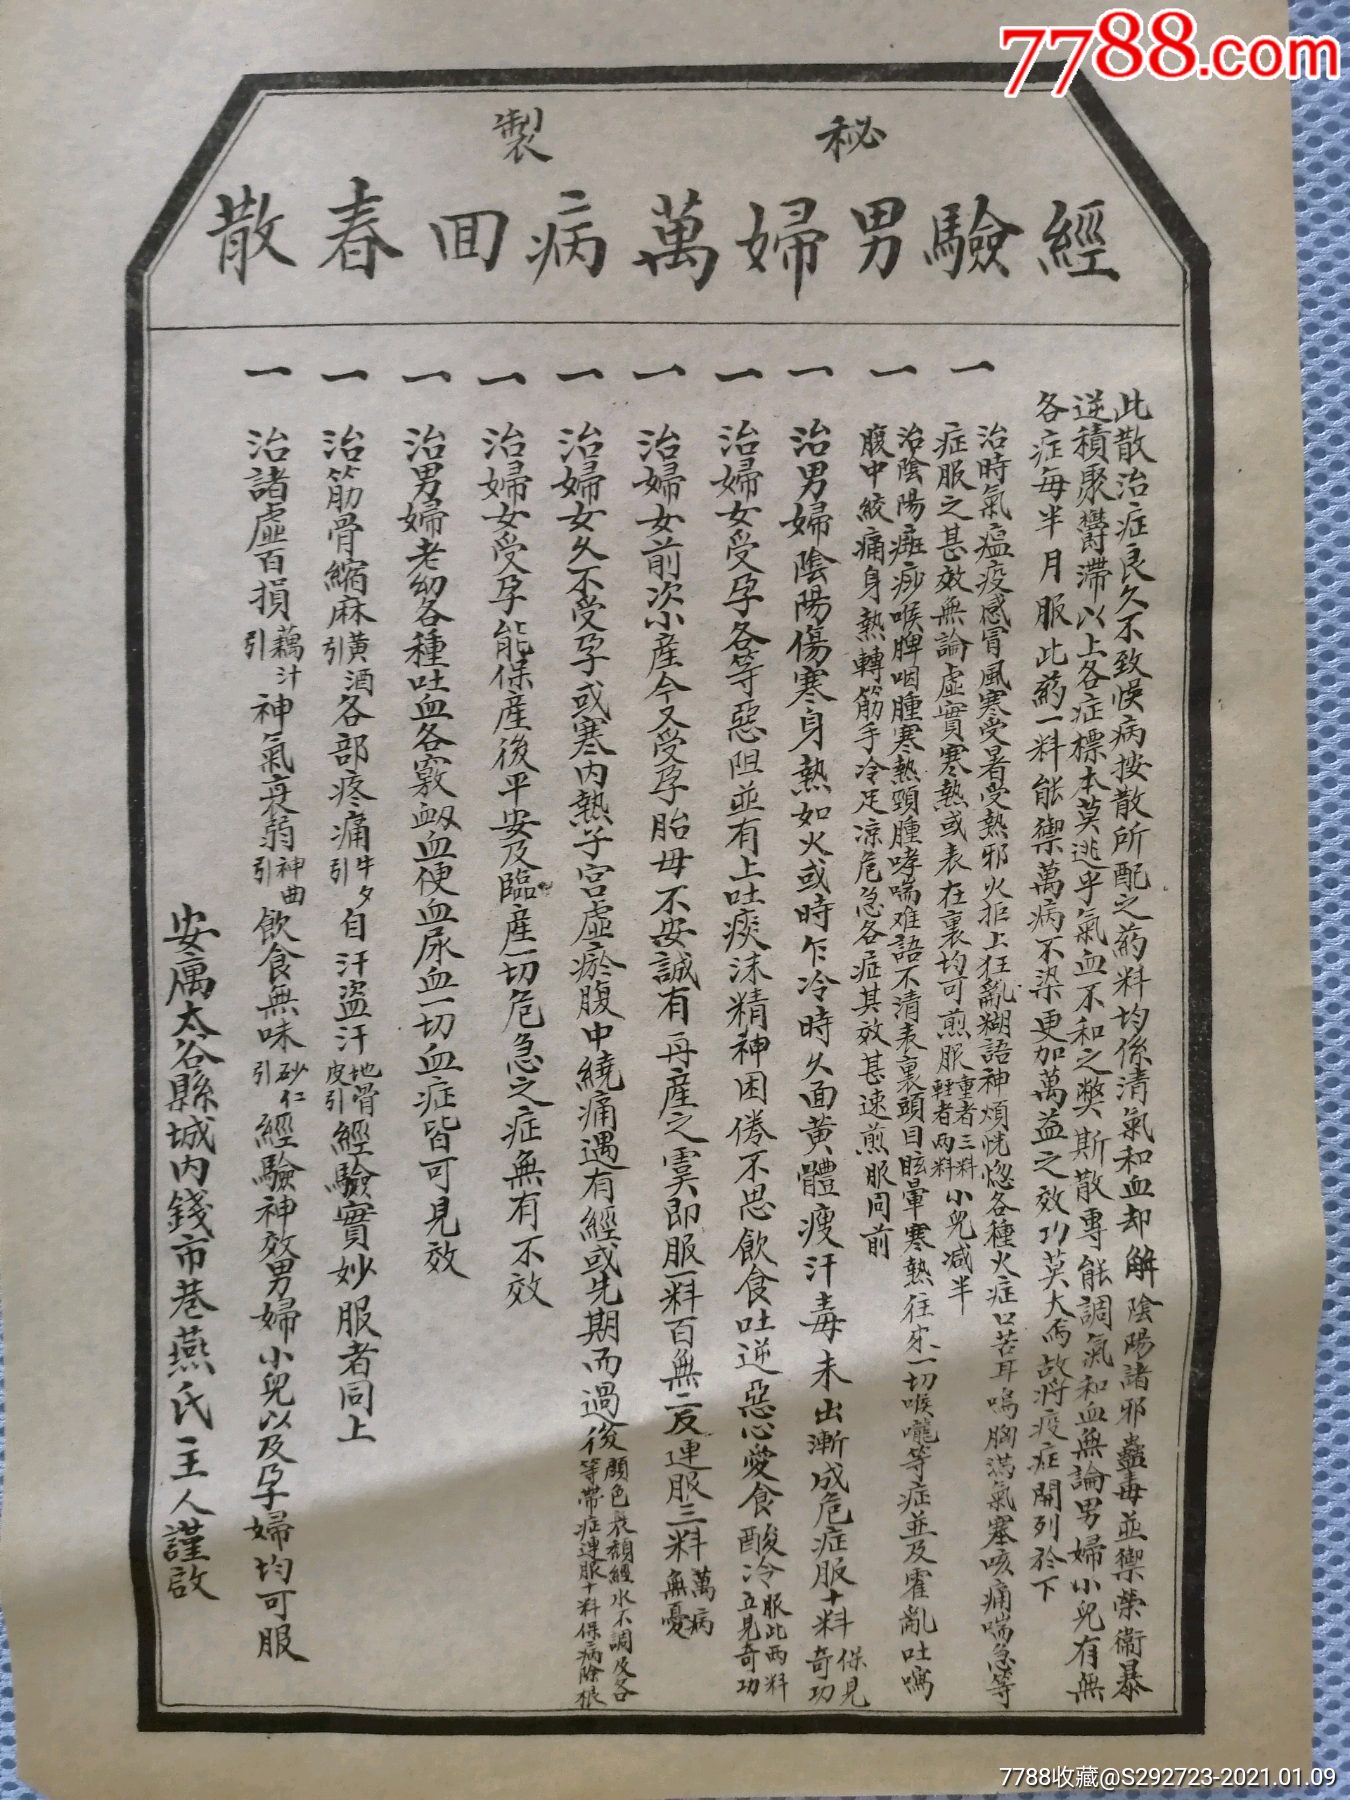 7788.com
秘製
經驗男婦萬病回春散
此散治症良久不致悞病按散所配之葯料均係清氣和血却解陰陽諸邪蠱毒並禦榮衞暴
逆積聚鬱滯以上各症標本莫逃乎氣血不和之弊斯散專能調氣和血無論男婦小兒有無
各症每半月服此葯一料能禦萬病不染更加萬益之效功莫大焉故將疫症開列於下
一
治時氣瘟疫感冒風寒受暑受熱邪火拒上狂亂糊語神煩恍惚各種火症口苦耳鳴胸滿氣塞咳痛喘急等
症服之甚效無論虛實寒熱或表在裏均可煎服重者三料輕者兩料小兒減半
一
治陰陽癍痧喉脾咽腫寒熱頸腫哮喘难語不清表裏頭目眩暈寒熱往來一切喉嚨等症並及霍亂吐瀉
腹中絞痛身熱轉筋手冷足凉危急各症其效甚速煎服同前
一
治男婦陰陽傷寒身熱如火或時乍冷時久面黃體瘦汗毒未出漸成危症服十料保見奇功
一
治婦女受孕各等惡阻並有上吐痰沫精神困倦不思飲食吐逆惡心愛食酸冷服此两料立見奇功
一
治婦女前次小產今又受孕胎母不安誠有再產之虞即服一料百無一反連服三料萬病無憂
一
治婦女久不受孕或寒內熱子宮虛瘀腹中繞痛遇有經或先期而過後顏色衰頹經水不調及各等帶症連服十料保病除根
一
治婦女受孕能保產後平安及臨產一切危急之症無有不效
一
治男婦老幼各種吐血各竅衂血便血尿血一切血症皆可見效
一
治筋骨縮麻黃酒引各部疼痛牛夕引自汗盜汗地骨皮引經驗實妙服者同上
一
治諸虛百損藕汁引神氣衰弱神曲引飲食無味砂仁引經驗神效男婦小兒以及孕婦均可服
安寓太谷縣城內錢市巷燕氏主人謹啟
7788收藏@S292723-2021.01.09